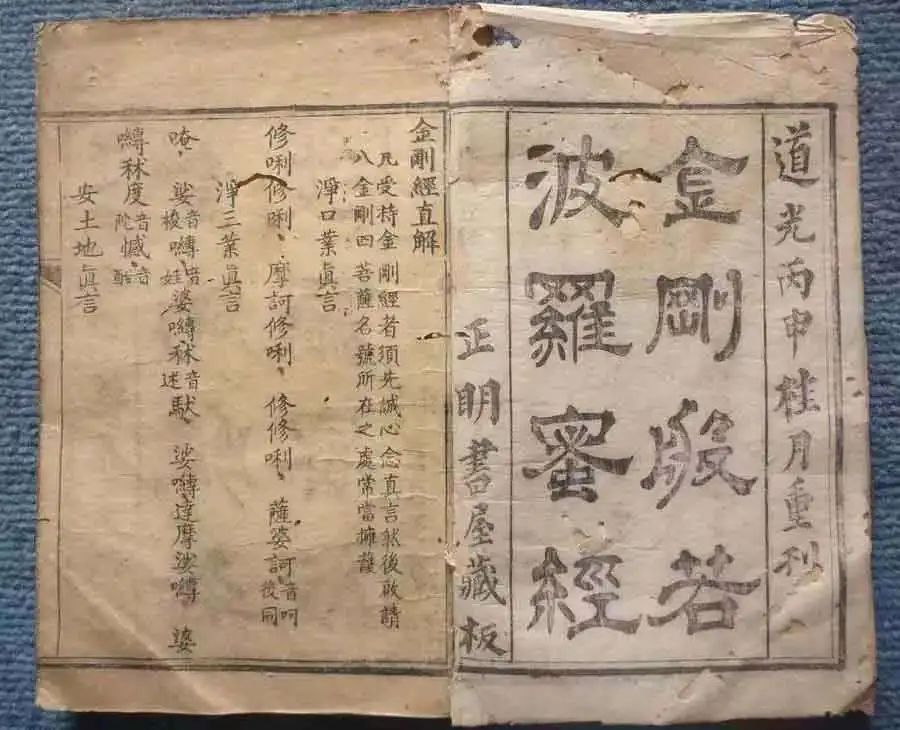 道光丙申桂月重刊
金剛般若
波羅蜜經
正明書屋藏板
金剛經直解
凡受持金剛經者須先誠心念真言然後啟請
八金剛四菩薩名號所在之處常當擁護
淨口業眞言
修唎修唎、摩訶修唎、修修唎、薩婆訶音呵後同
淨三業眞言
唵、娑音梭嚩音娃婆嚩秫音述馱、娑嚩達摩娑嚩 婆
嚩秫度音陀憾音酣
安土地眞言